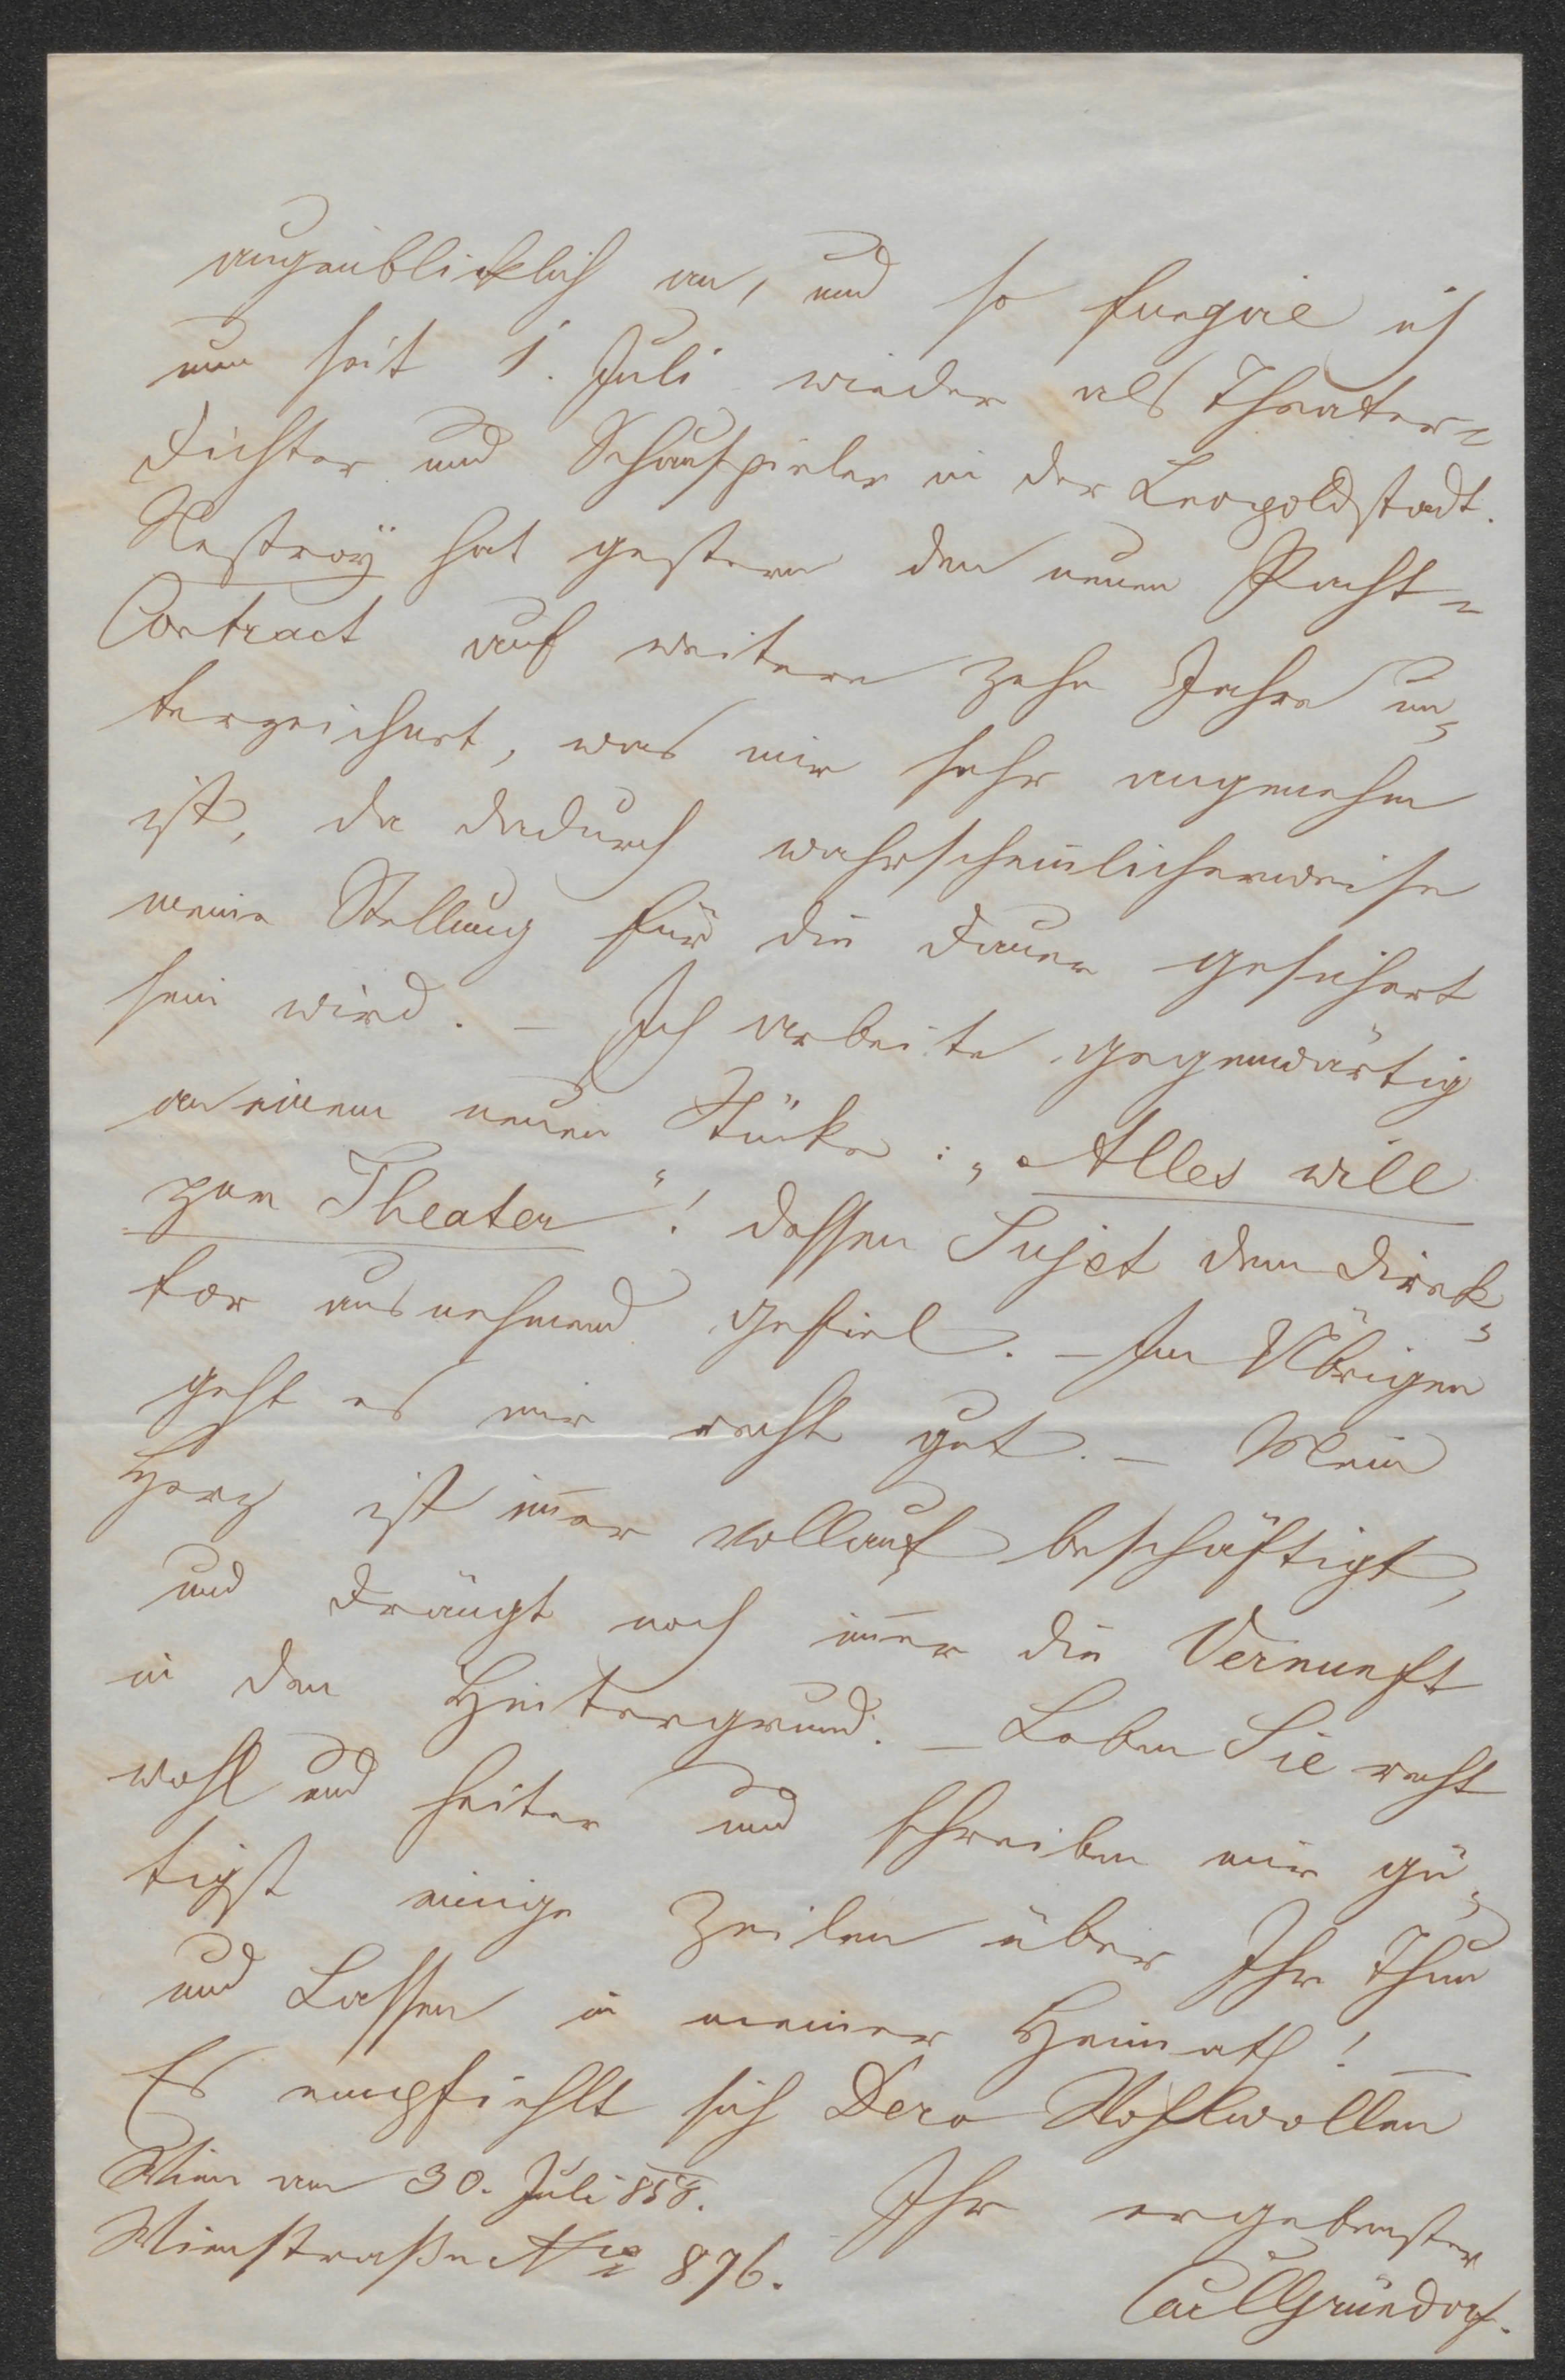 augenblicklich an, und so fungire ich
nun seit 1. Juli wieder als Theater=
dichter und Schauspieler in der Leopoldstadt.
Nestroÿ hat gestern den neuen Pacht=
Contract auf weitere zehn Jahre un=
terzeichnet, was mir sehr angenehm
ist, da dadurch wahrscheinlicherweise
meine Stellung für die Dauer gesichert
sein wird. – Ich arbeite gegenwärtig
an einem neuen Stücke: „Alles will
zum Theater“! dessen Sujet dem Direk=
tor ausnehmend gefiel. – Im Übrigen
geht es mir recht gut. – Mein
Herz ist im̄er vollauf beschäftigt,
und drängt noch im̄er die Vernunft
in den Hintergrund. – Leben Sie recht
wohl und heiter und schreiben mir gü=
tigst einige Zeilen über Ihr Thun
und Lassen in meiner Heimath! –
Es empfiehlt sich Dero Wohlwollen
Wien am 30. Juli 858.
Ihr ergebenster
Wienstraße No 876.
Carl Gründorf.